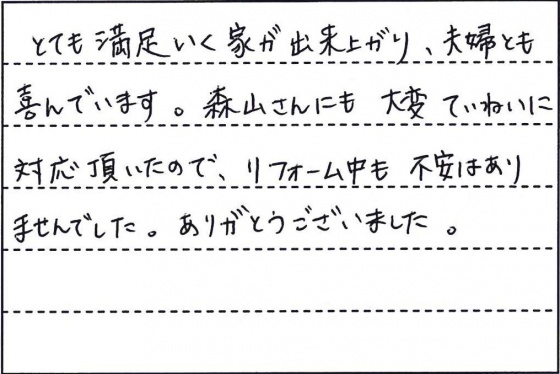 とても満足いく家が出来上がり、夫婦とも
喜んでいます。森山さんにも大変ていねいに
対応頂いたので、リフォーム中も不安はあり
ませんでした。ありがとうございました。